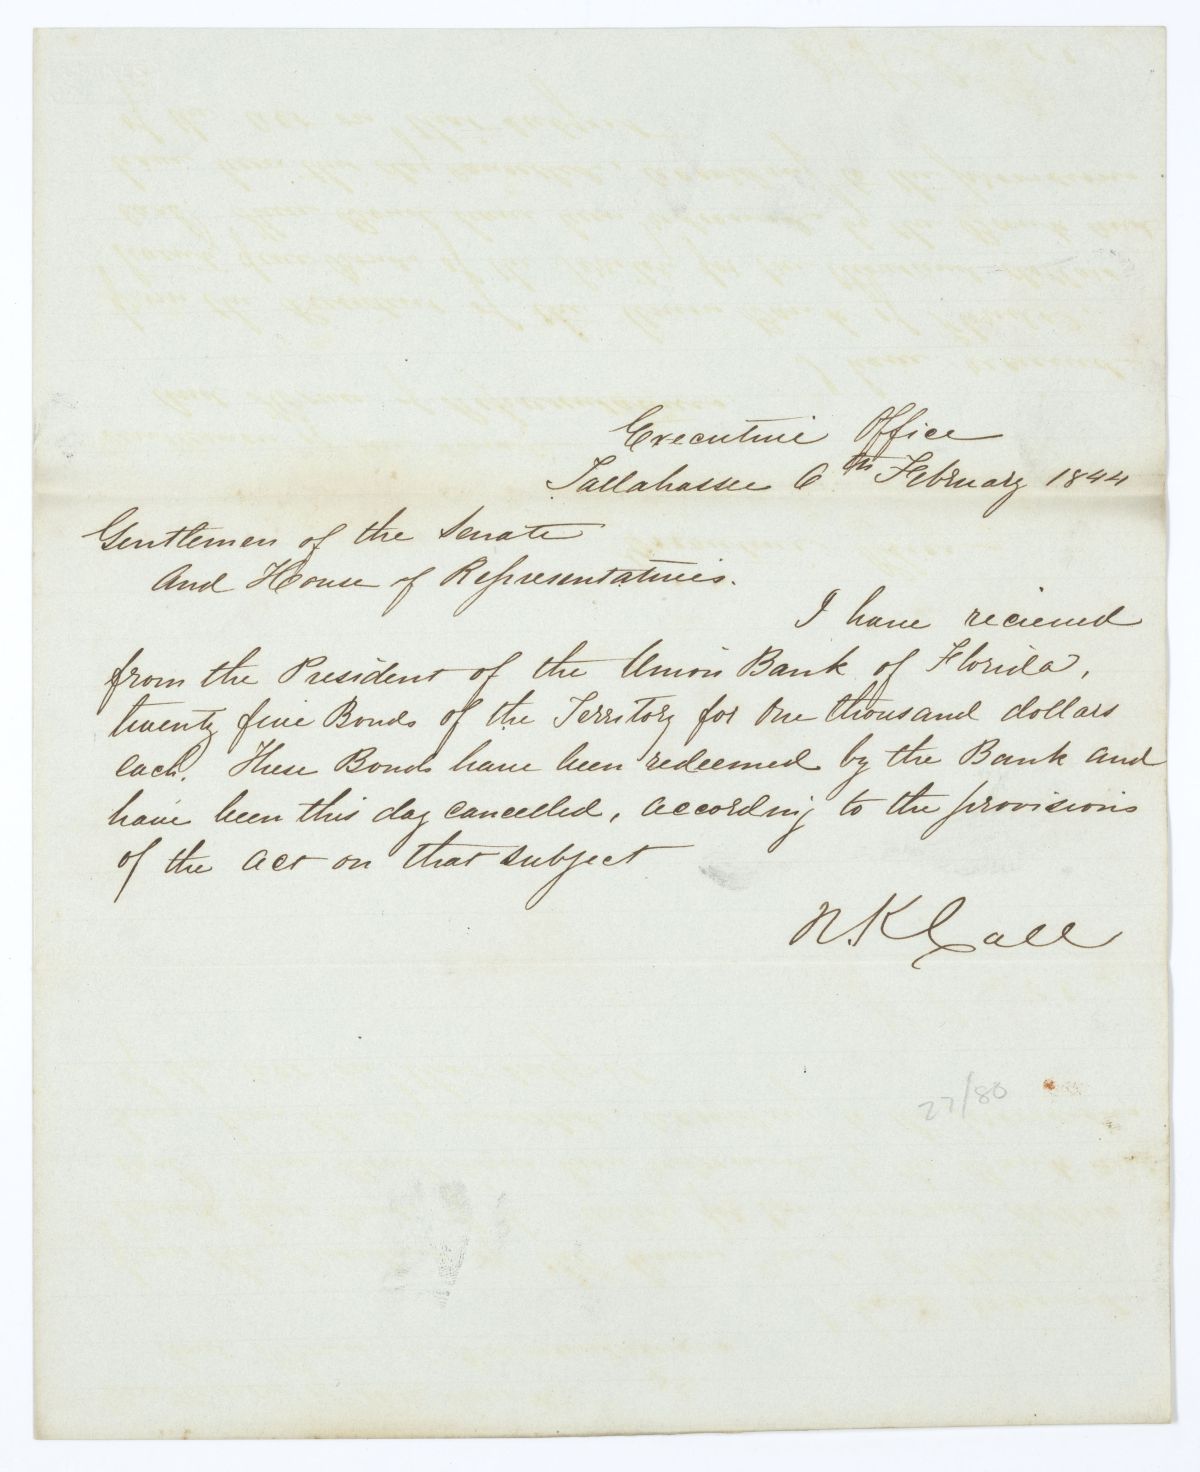 Executive Office
Tallahassee 6th February 1844
Gentlemen of the Senate
And House of Representatives.
I have recieved
from the President of the Union Bank of Florida,
twenty five Bonds of the Territory for One thousand dollars
each. These Bonds have been redeemed by the Bank and
have been this day cancelled, according to the provisions
of the act on that subject
R. K Call
27/80